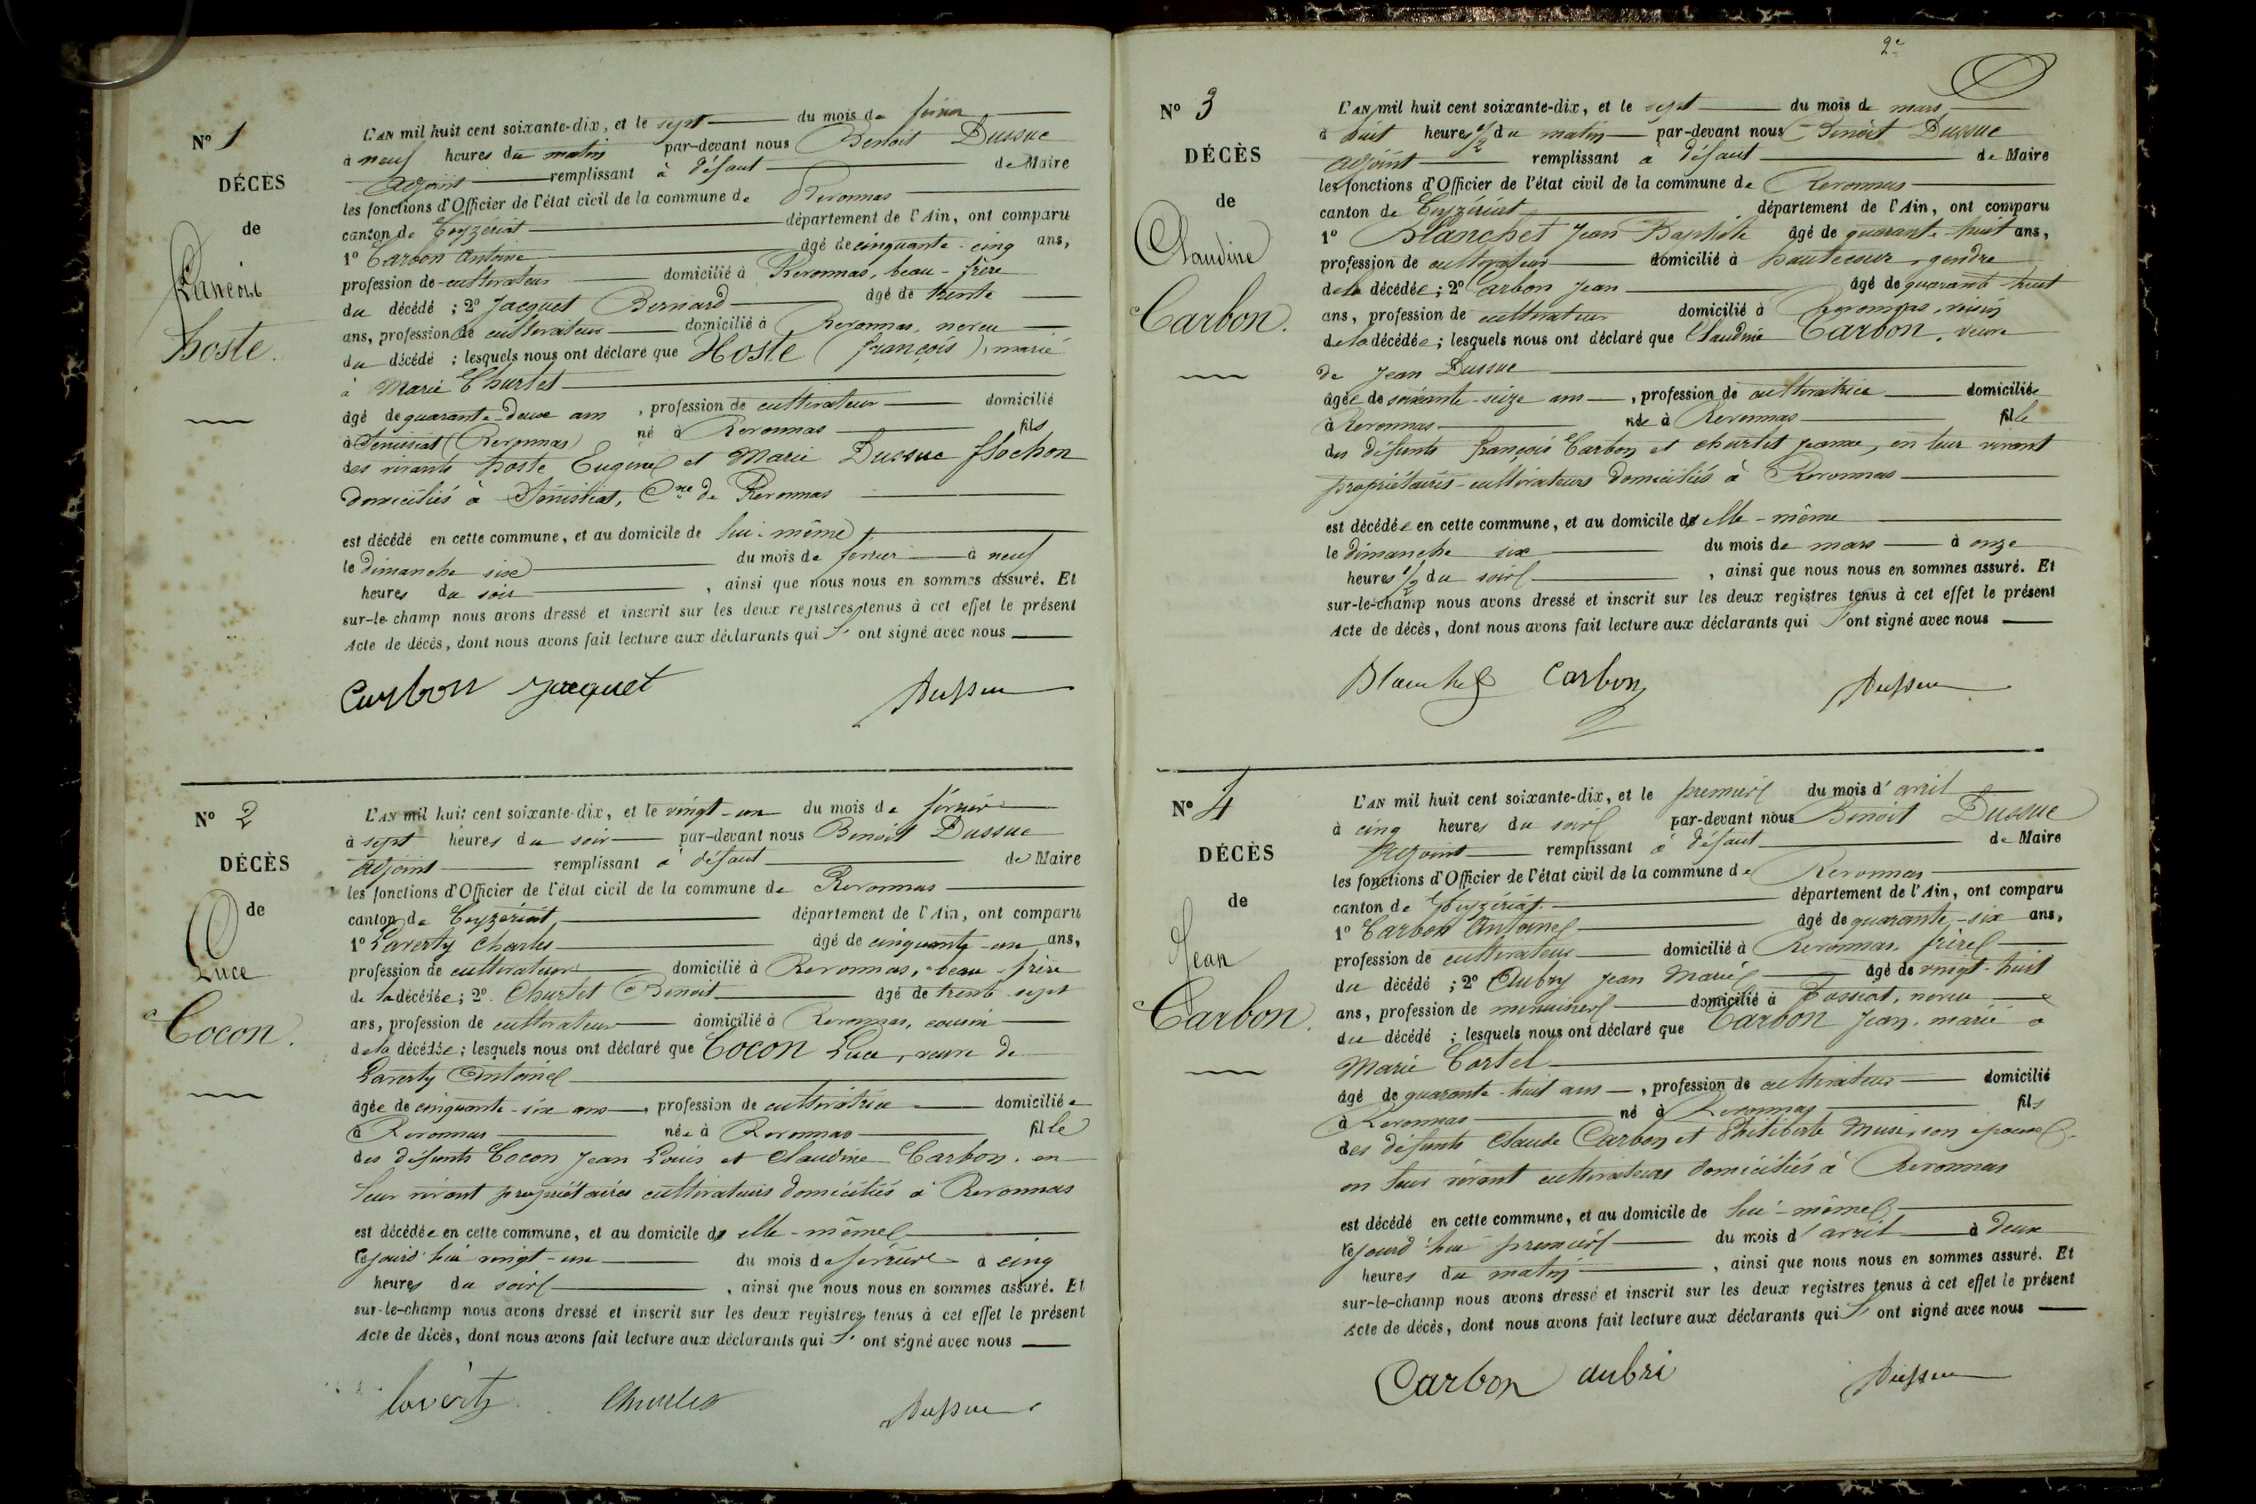 Nº 1
DÉCÈS
de
François
hoste.
L'AN mil huit cent soixante-dix, et le sept du mois de février
à neuf heures du matin par-devant nous Benoit Dussuc
adjoint remplissant à défaut de Maire
les fonctions d'Officier de l'état civil de la commune de Revonnas
canton de Ceyzériat département de l'Ain, ont comparu
1º Carbon antoine âgé de cinquante-cinq ans,
profession de cultivateur domicilié à Revonnas, beau-frère
du décédé ; 2º Jacquet Bernard âgé de trente
ans, profession de cultivateur domicilié à Revonnas, neveu
du décédé ; lesquels nous ont déclaré que Hoste (françois), marié
à Marie Churlet
âgé de quarante-deux ans, profession de cultivateur domicilié
à Sénissiat (Revonnas) né à Revonnas fils
des vivants hoste Eugène et Marie Dussuc flochon
domiciliés à Sénissiat, Cne de Revonnas
est décédé en cette commune, et au domicile de lui-même
le dimanche six du mois de février à neuf
heures du soir, ainsi que nous nous en sommes assuré. Et
sur-le-champ nous avons dressé et inscrit sur les deux registres tenus à cet effet le présent
Acte de décès, dont nous avons fait lecture aux déclarants qui l' ont signé avec nous
Carbon Jacquet Dussuc
Nº 2
DÉCÈS
de
Luce
Cocon.
L'AN mil huit cent soixante-dix, et le vingt-un du mois de février
à sept heures du soir par-devant nous Benoit Dussuc
adjoint remplissant à défaut de Maire
les fonctions d'Officier de l'état civil de la commune de Revonnas
canton de Ceyzériat département de l'Ain, ont comparu
1º Laverty Charles âgé de cinquante-un ans,
profession de cultivateur domicilié à Revonnas, beau-frère
de la décédée ; 2º Churlet Benoit âgé de trente-sept
ans, profession de cultivateur domicilié à Revonnas, cousin
de la décédée ; lesquels nous ont déclaré que Cocon Luce, veuve de
Laverty Antoine
âgée de cinquante-six ans, profession de cultivatrice domiciliée
à Revonnas née à Revonnas fille
des défunts Cocon Jean Louis et Claudine Carbon, en
leur vivant propriétaires cultivateurs domiciliés à Revonnas
est décédée en cette commune, et au domicile de elle-même
cejourd'hui vingt-un du mois de février à cinq
heures du soir, ainsi que nous nous en sommes assuré. Et
sur-le-champ nous avons dressé et inscrit sur les deux registres tenus à cet effet le présent
Acte de décès, dont nous avons fait lecture aux déclarants qui l' ont signé avec nous
laverty Churlet Dussuc
2e
Nº 3
DÉCÈS
de
Claudine
Carbon.
L'AN mil huit cent soixante-dix, et le sept du mois de mars
à huit heures 1/2 du matin par-devant nous Benoit Dussuc
adjoint remplissant à défaut de Maire
les fonctions d'Officier de l'état civil de la commune de Revonnas
canton de Ceyzériat département de l'Ain, ont comparu
1º Blanchet Jean Baptiste âgé de quarante-huit ans,
profession de cultivateur domicilié à hautecour, gendre
de la décédée ; 2º Carbon Jean âgé de quarante-huit
ans, profession de cultivateur domicilié à Revonnas, voisin
de la décédée ; lesquels nous ont déclaré que Claudine Carbon, veuve
de Jean Dussuc
âgée de soixante-seize ans, profession de cultivatrice domiciliée
à Revonnas née à Revonnas fille
des défunts françois Carbon et churlet jeanne, en leur vivant
propriétaires-cultivateurs domiciliés à Revonnas
est décédée en cette commune, et au domicile de elle-même
le dimanche six du mois de mars à onze
heures 1/2 du soir, ainsi que nous nous en sommes assuré. Et
sur-le-champ nous avons dressé et inscrit sur les deux registres tenus à cet effet le présent
Acte de décès, dont nous avons fait lecture aux déclarants qui l'ont signé avec nous
Blanchet Carbon Dussuc
Nº 4
DÉCÈS
de
Jean
Carbon.
L'AN mil huit cent soixante-dix, et le premier du mois d'avril
à cinq heures du soir par-devant nous Benoit Dussuc
adjoint remplissant à défaut de Maire
les fonctions d'Officier de l'état civil de la commune de Revonnas
canton de Ceyzériat département de l'Ain, ont comparu
1º Carbon Antoine âgé de quarante-six ans,
profession de cultivateur domicilié à Revonnas, frère
du décédé ; 2º Aubry Jean Marie âgé de vingt-huit
ans, profession de menuisier domicilié à Tossiat, neveu
du décédé ; lesquels nous ont déclaré que Carbon Jean, marié à
Marie Cortel
âgé de quarante-huit ans, profession de cultivateur domicilié
à Revonnas né à Revonnas fils
des défunts Claude Carbon et Philiberte son épouse,
en leur vivant cultivateurs domiciliés à Revonnas
est décédé en cette commune, et au domicile de lui-même
cejourd'hui premier du mois d'avril à deux
heures du matin, ainsi que nous nous en sommes assuré. Et
sur-le-champ nous avons dressé et inscrit sur les deux registres tenus à cet effet le présent
Acte de décès, dont nous avons fait lecture aux déclarants qui l' ont signé avec nous
Carbon aubri Dussuc